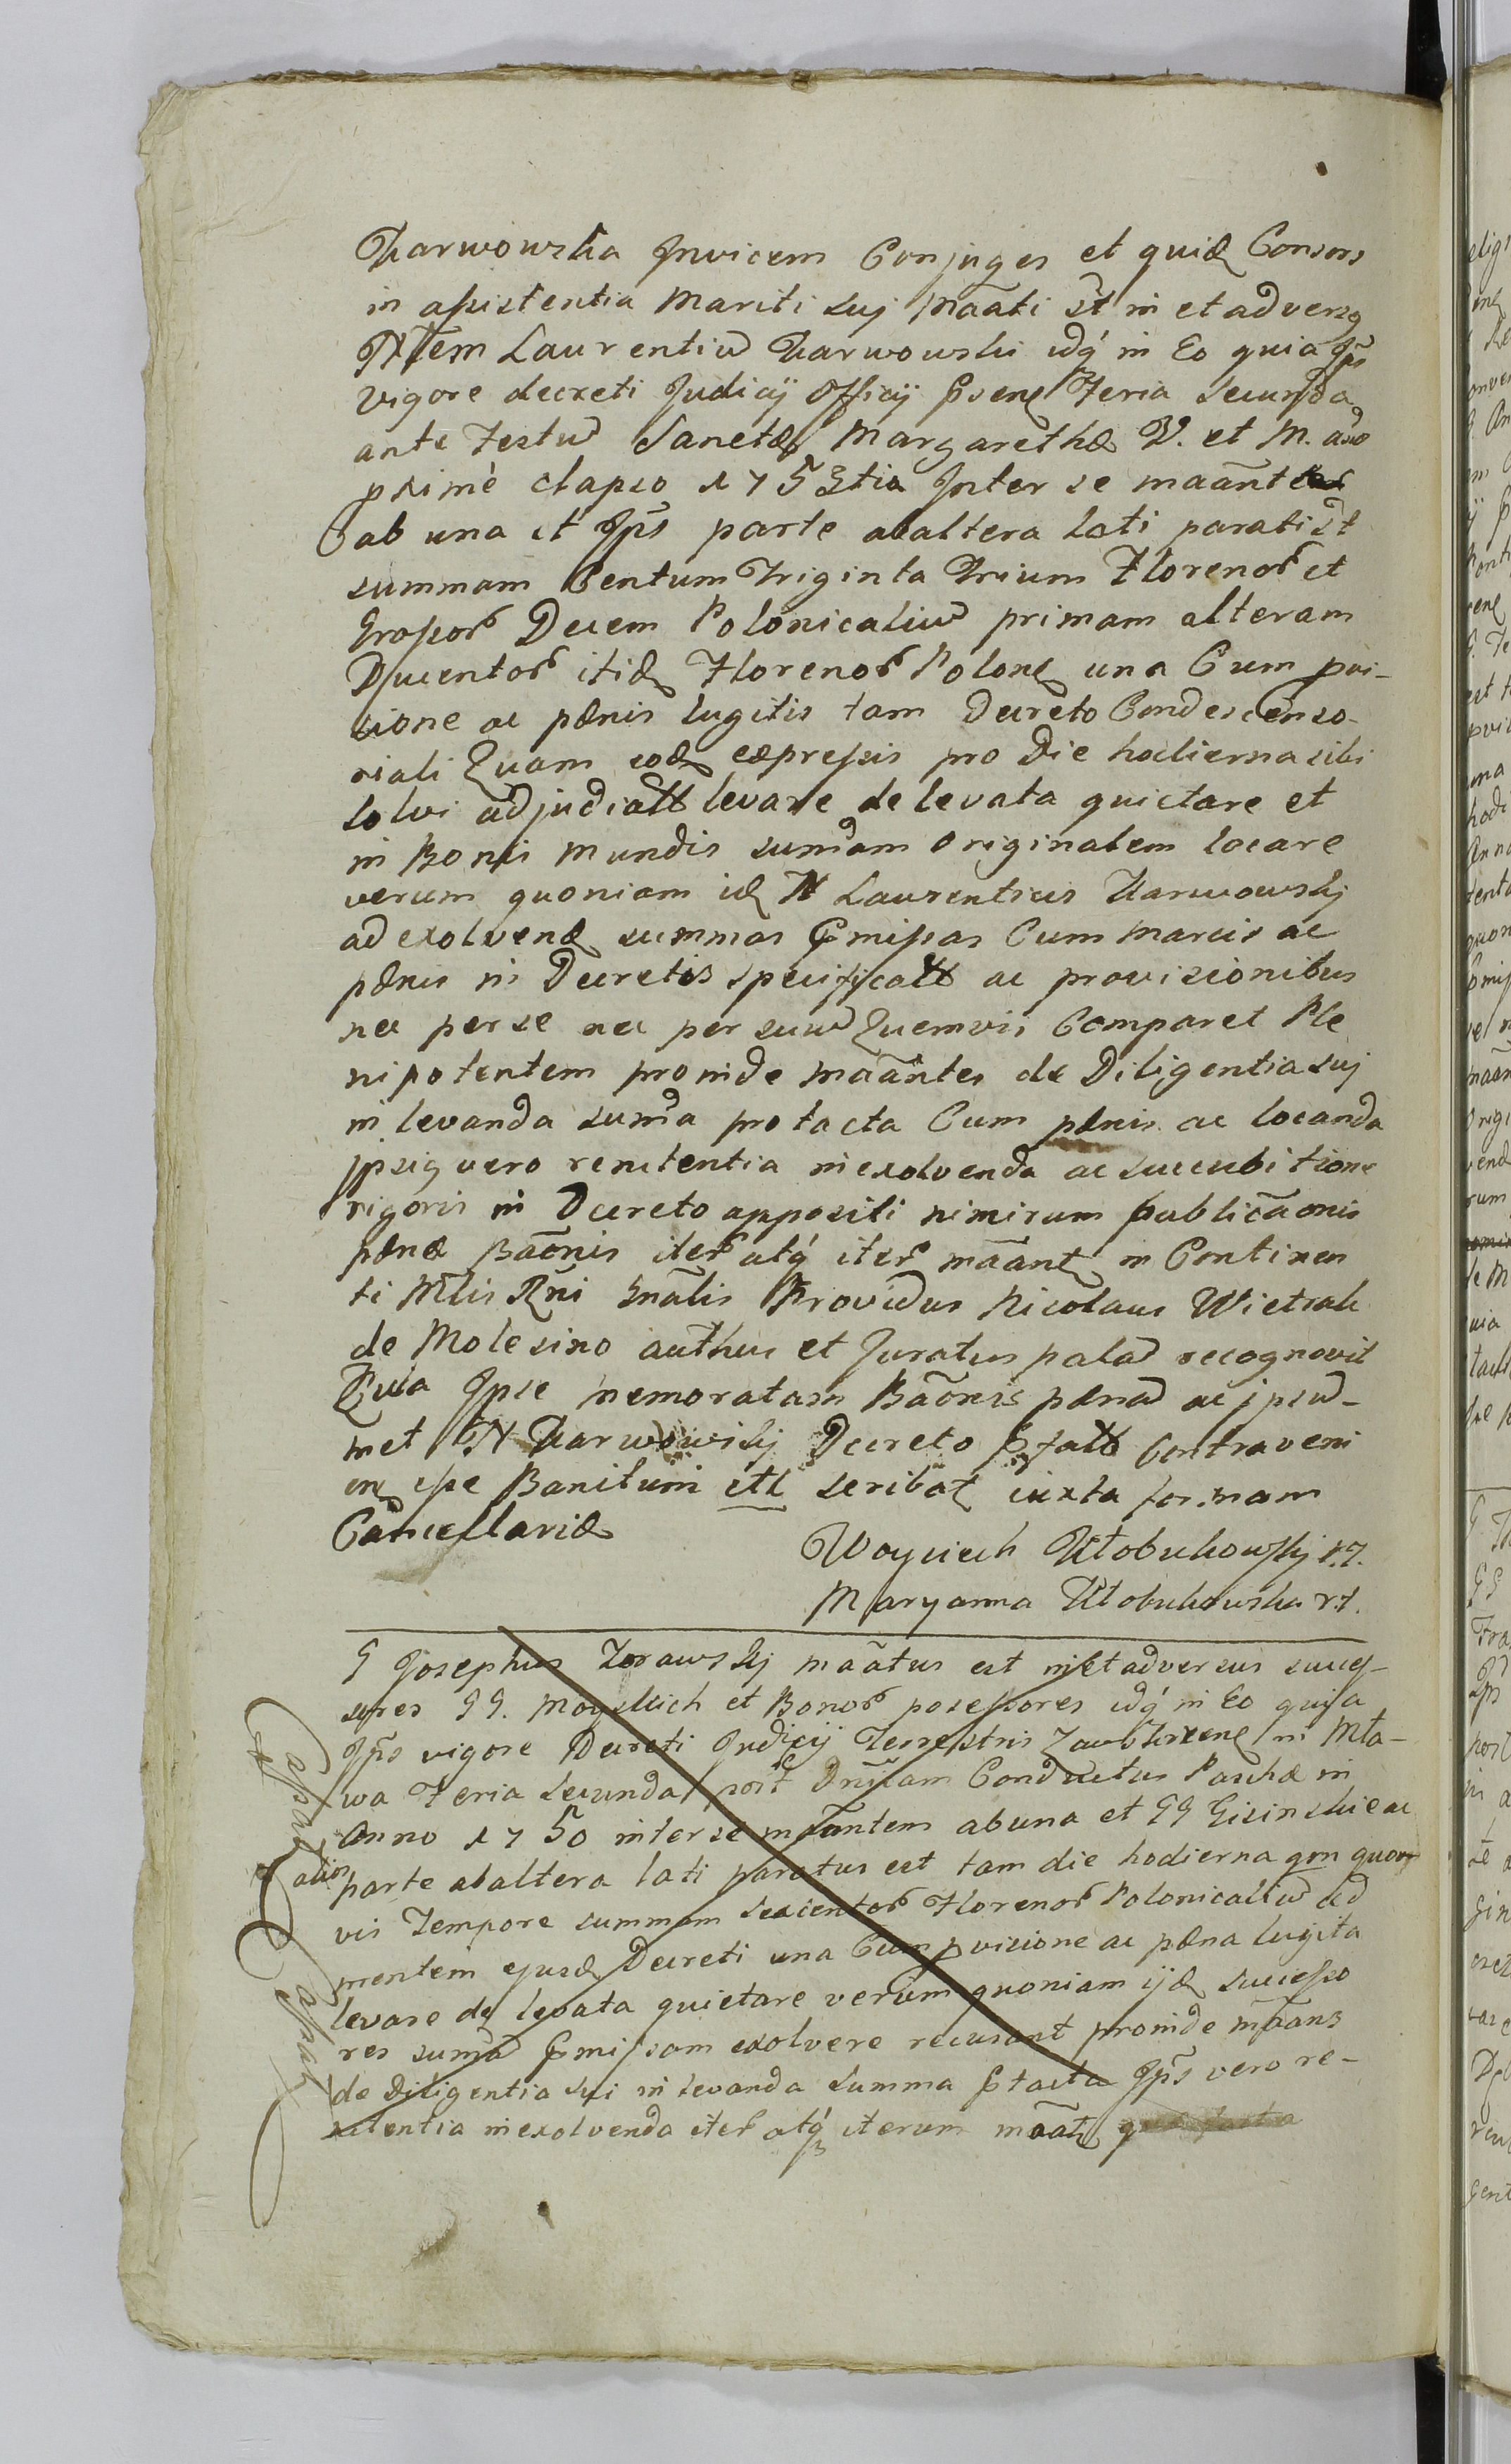 Karwowska Invicem Conjuges et quidē Consors
in assistentia Mariti suj mãati st in et adversq
Nem Laurentiū Karwowski idq́ in Eo quia Ips
vigore decreti Judicij Officij psenē Feria Secunda
ante Festū Sanctæ Margarethæ V. et M. año
primè elapso 1753tio Inter se maãntes
ab una et Ips parte abaltera lati parati st
summam Centum Triginta Trium Florenor et
Grossor Decem Polonicaliū primam alteram
Ducentor itidē Florenor Polonē una Cum pvi-
sione ac pænis lugitis tam Decreto Condescenso-
riali Quam eodē expressis pro Die hodierna sibi
solvi adjudicatt levare de levata quietare et
in Bonis mundis summam Originalem locare
verum quoniam idē N Laurentius Karwowskj
ad exolvendē summas pmissas Cum marcis ac
pænis in Decretis specificatt ac provisionibus
nec per se nec per suuū Quemvis Comparet Ple
nipotentem proinde maãntes de Diligentia suj
in levanda suma protacta Cum pænis ac locanda
ipsiq vero renitentia in exolvenda ac succubitione
rigoris in Decreto appositi nimirum publicãonis
pænæ Baõnis iter atq́ iter mãant in Continen
ti Mtis Rñi Gnãlis Providus Nicolaus Wietrak
de Molesino authus et Juratus palaū recognovit
Quia Ipse memoratam Baõnis pænaū ac ipsū-
met N Karwowskj Decreto pfatt Contraveni
enē esse Banitum ett scribatē iuxta formam
Cancellariæ
Woyciech Kłobukowskj r.
Maryanna Kłobukowska r.
G Josephus Zorawskj maãtus est in et adversus succes-
sores GG. Moyskich et Bonor posessores idq́ in Eo quia
Ips vigore Decreti Judicij Terrestris Zawkrzenē in Mła-
wa Feria Secunda post Dñicam Conductus Paschæ in
Anno 1750 inter se mãntem ab una et GG Gisinskie ac
alios parte abaltera lati paratus est tam die hodierna qm quov
vis Tempore summam Sexcentor Florenor Polonicaliū ad
mentem ejusdē Decreti una Cum pvisione ac pæna lugita
levare de levata quietare verum quoniam ijdē successo
res sumaū pmissam exolvere recusant proinde mãans
de Diligentia sui in levanda summa ptacta Ips vero re-
nitentia in exolvenda iter atq́ iterum maãtē
Cassat Cassat